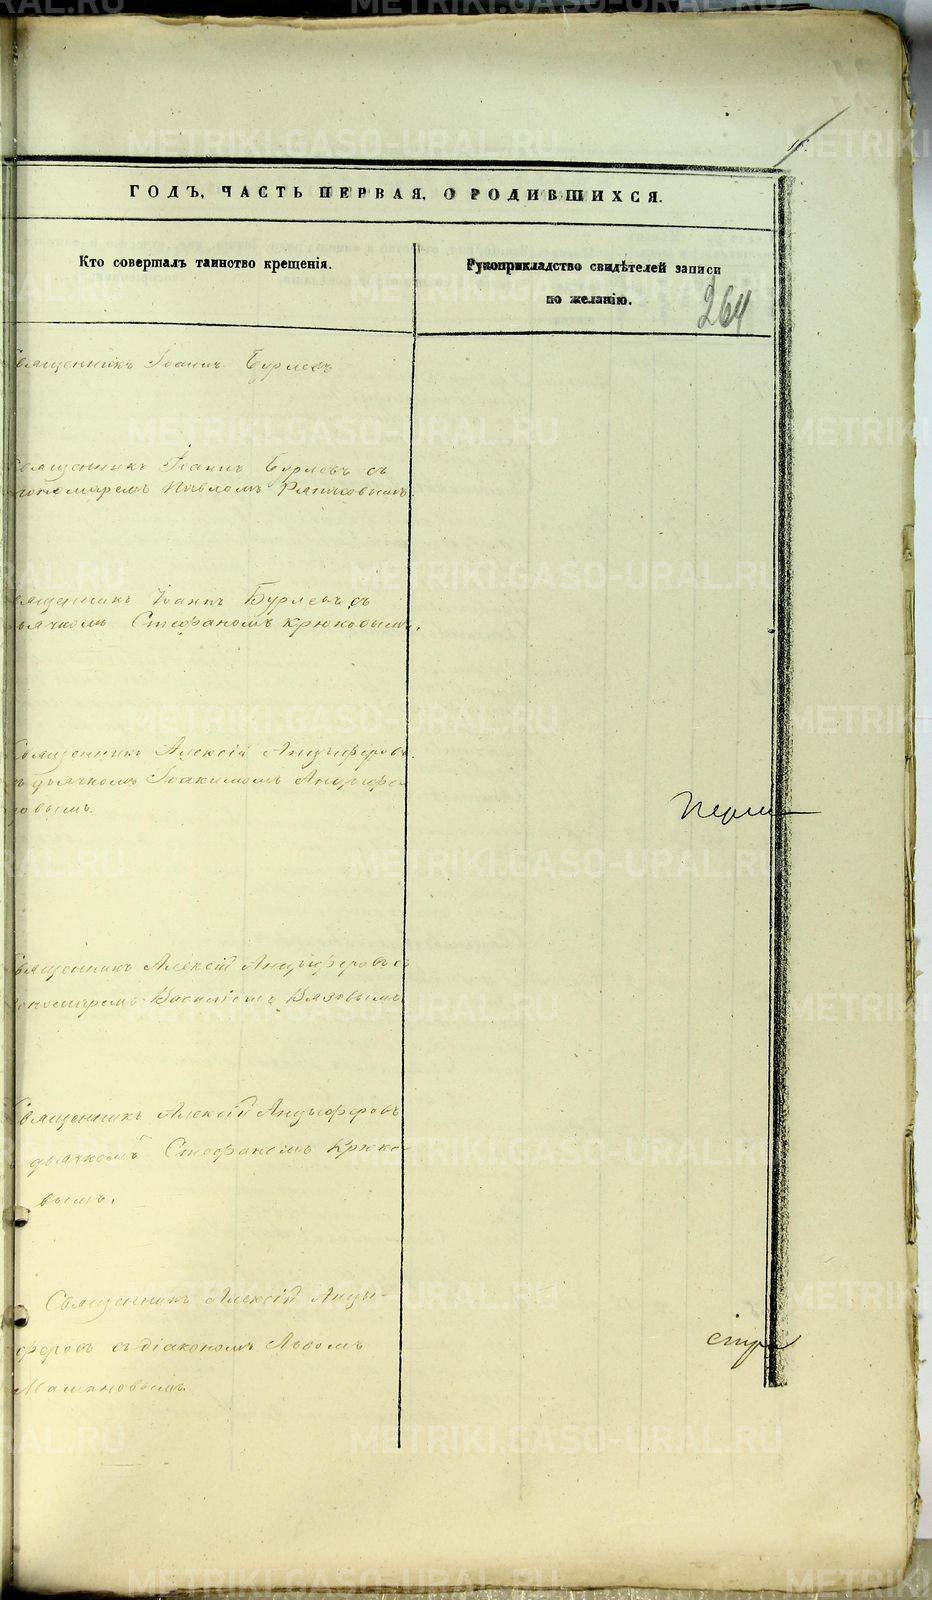 ГОДЪ, ЧАСТЬ ПЕРВАЯ, О РОДИВШИХСЯ.
Кто совершалъ таинство крещенія.
Рукоприкладство свидѣтелей записи
по желанію.
264
Священникъ Іоаннъ Бурлевъ
Священникъ Іоаннъ Бурлевъ съ
пономаремъ Павломъ
Священникъ Іоаннъ Бурлевъ съ
дьячкомъ Стефаномъ Крюковымъ.
Священникъ Алексій Анцыферовъ
съ дьячкомъ Іоакимомъ Анцыфе-
ровымъ
Священникъ Алексій Анцыферовъ с
пономаремъ Василіемъ Вязовымъ
Священникъ Алексій Анцыферовъ
дьячкомъ Стефаномъ Крюко-
вымъ.
Священникъ Алексій Анцы-
феровъ съ діакономъ Львомъ
METRIKI.GASO-URAL.RU